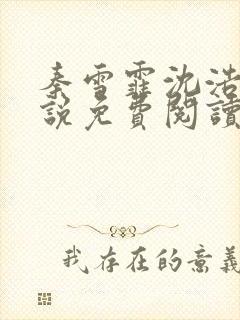 秦雪霏沈浩
說免費閱讀
我存在的意義